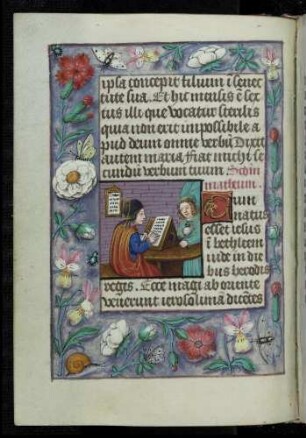 ipsa concepit filium i senec
tute sua. Et hic mensis e sex
tus illi que vocatur sterilis
quia non erit inpossibile a
pud deum omne verbu Dixit
autem maria Fiat michi se
cundu verbum tuum. Scdm
matheum.
Cum
natus
esset iesus
i bethleem
iude in die
bus herodis
regis. Ecce magi ab oriente
venerunt ierosolimā dicētes